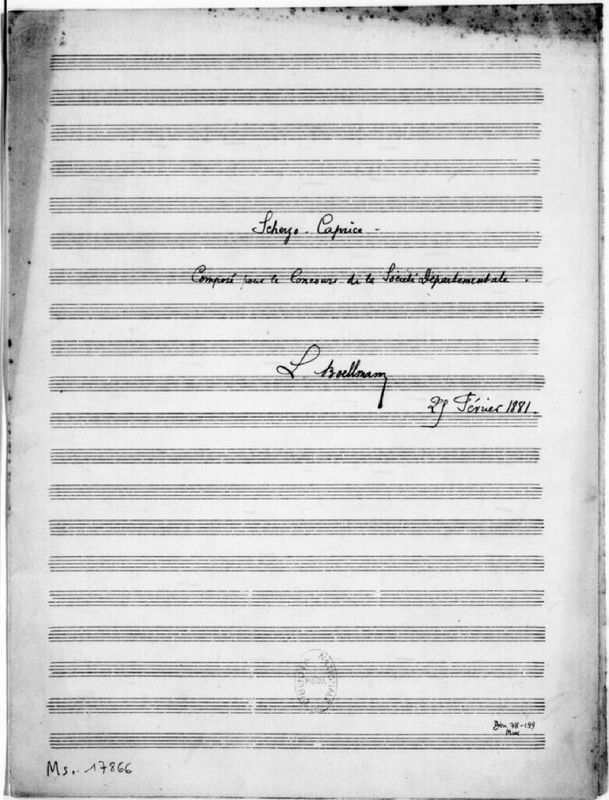 Scherzo - Caprice -
Composé pour le Concours de la Société Départementale .
L. Boëllmann
27 Février 1881.
NATIONALE
Don 78-199
Mus
Ms. 17866